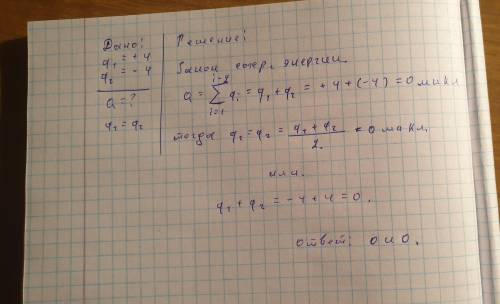 Дано:
q₁ = +4
q₂ = -4
Q = ?
q₁ = q₂
Решение:
Закон сохр. энергии
Q = ∑ qᵢ = q₁ + q₂ = +4 + (-4) = 0 мкКл
тогда q₁ = q₂ = (q₁ + q₂) / 2 = 0 мкКл.
или.
q₁ + q₂ = -4 + 4 = 0.
ответ: 0 и 0.